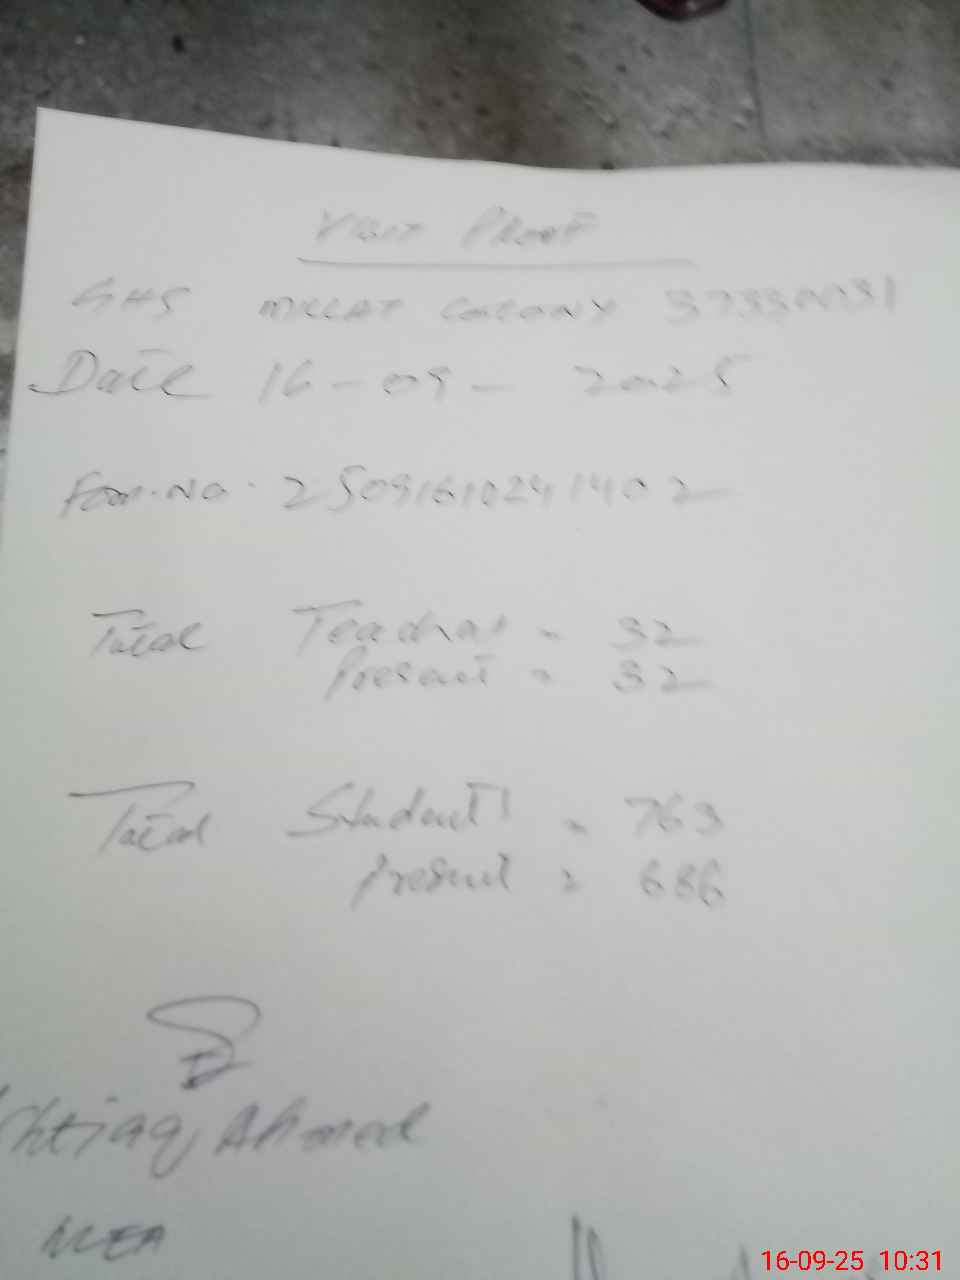 VISIT PROOF
GHS MILLAT COLONY 37330031
Date 16-09-2025
Form.No. 25091610241402
Total Teachers = 32
Present = 32
Total Students = 763
Present = 686
Ishtiaq Ahmed
MEA
16-09-25 10:31